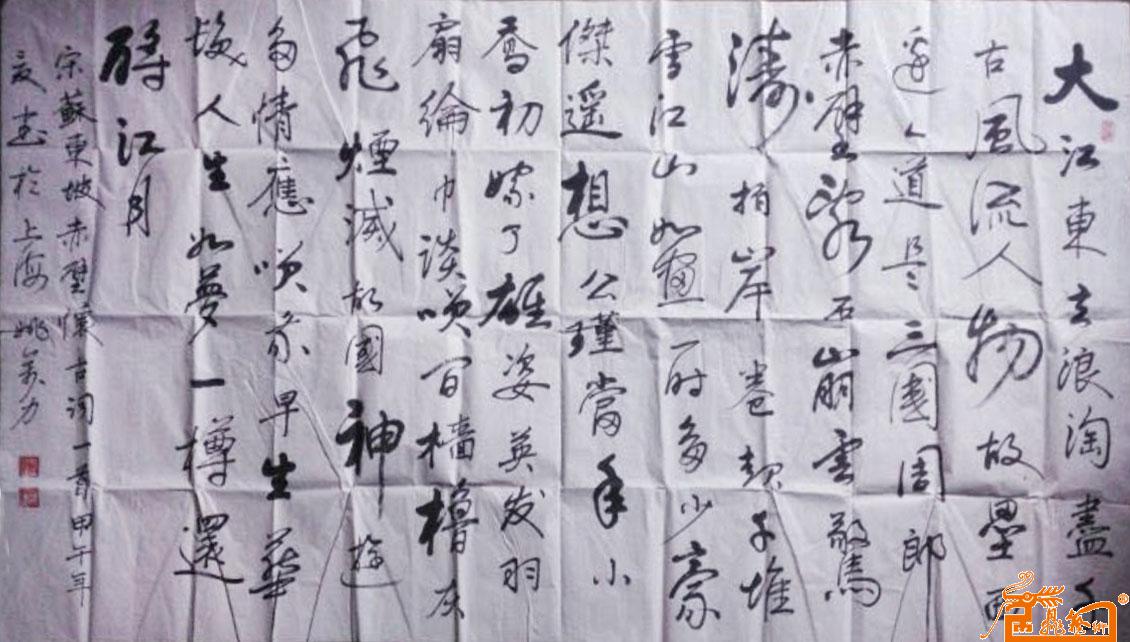 大江東去浪淘盡千
古風流人物故壘西
邊人道是三國周郎
赤壁亂石崩雲驚
濤拍岸卷起千堆
雪江山如畫一時多少豪
傑遥想公瑾當年小
喬初嫁了雄姿英发羽
扇綸巾談笑间檣櫓灰
飛煙滅故國神遊
多情應笑我早生華
髮人生如夢一樽還
酹江月
宋蘇東坡赤壁懷古词一首甲午年
夏書於上海姚